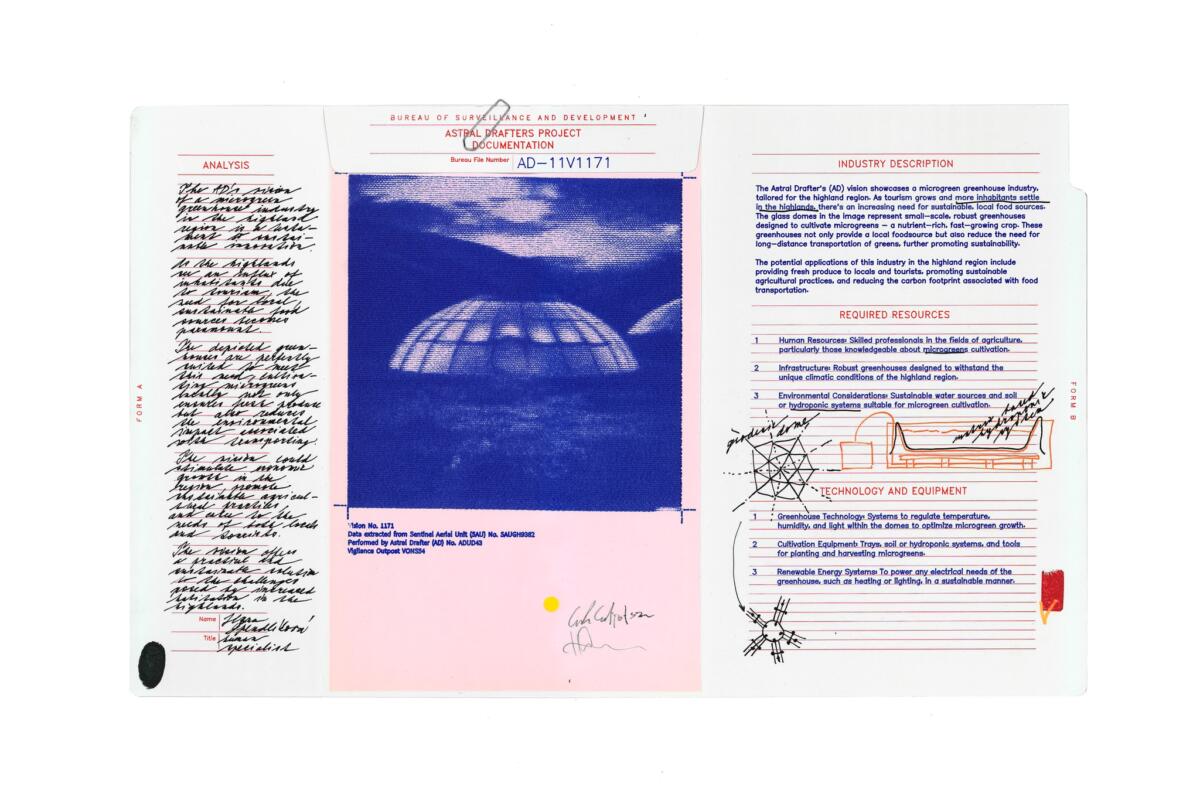 FORM A
ANALYSIS
The AD's vision
of a microgreen
greenhouse industry
in the highland
region is a testa-
ment to sustai-
nable innovation.
As the highlands
see an influx of
inhabitants due
to tourism, the
need for local,
sustainable food
sources becomes
paramount.
The depicted green-
houses are perfectly
suited to meet
this need, cultiva-
ting microgreens
locally not only
ensures fresh produce
but also reduces
the environmental
impact associated
with transporting.
The vision could
stimulate economic
growth in the
region, promote
sustainable agricul-
tural practices
and cater to the
needs of both locals
and tourists.
The vision offers
a practical and
sustainable solution
to the challenges
posed by increased
habitation in the
highlands.
Name
Title
specialist
BUREAU OF SURVEILLANCE AND DEVELOPMENT
ASTRAL DRAFTERS PROJECT
DOCUMENTATION
Bureau File Number AD-11V1171
Vision No. 1171
Data extracted from Sentinel Aerial Unit (SAU) No. SAUGH9382
Performed by Astral Drafter (AD) No. ADUD43
Vigilance Outpost VONS54
INDUSTRY DESCRIPTION
The Astral Drafter's (AD) vision showcases a microgreen greenhouse industry,
tailored for the highland region. As tourism grows and more inhabitants settle
in the highlands, there's an increasing need for sustainable, local food sources.
The glass domes in the image represent small-scale, robust greenhouses
designed to cultivate microgreens - a nutrient-rich, fast-growing crop. These
greenhouses not only provide a local foodsource but also reduce the need for
long-distance transportation of greens, further promoting sustainability.
The potential applications of this industry in the highland region include
providing fresh produce to locals and tourists, promoting sustainable
agricultural practices, and reducing the carbon footprint associated with food
transportation.
REQUIRED RESOURCES
1 Human Resources: Skilled professionals in the fields of agriculture,
particularly those knowledgeable about microgreens cultivation.
2 Infrastructure: Robust greenhouses designed to withstand the
unique climatic conditions of the highland region.
3 Environmental Considerations: Sustainable water sources and soil
or hydroponic systems suitable for microgreen cultivation.
geodesic dome
based
hydroponic
system
TECHNOLOGY AND EQUIPMENT
1 Greenhouse Technology: Systems to regulate temperature,
humidity, and light within the domes to optimize microgreen growth.
2 Cultivation Equipment: Trays, soil or hydroponic systems, and tools
for planting and harvesting microgreens.
3 Renewable Energy Systems: To power any electrical needs of the
greenhouse, such as heating or lighting, in a sustainable manner.
FORM B